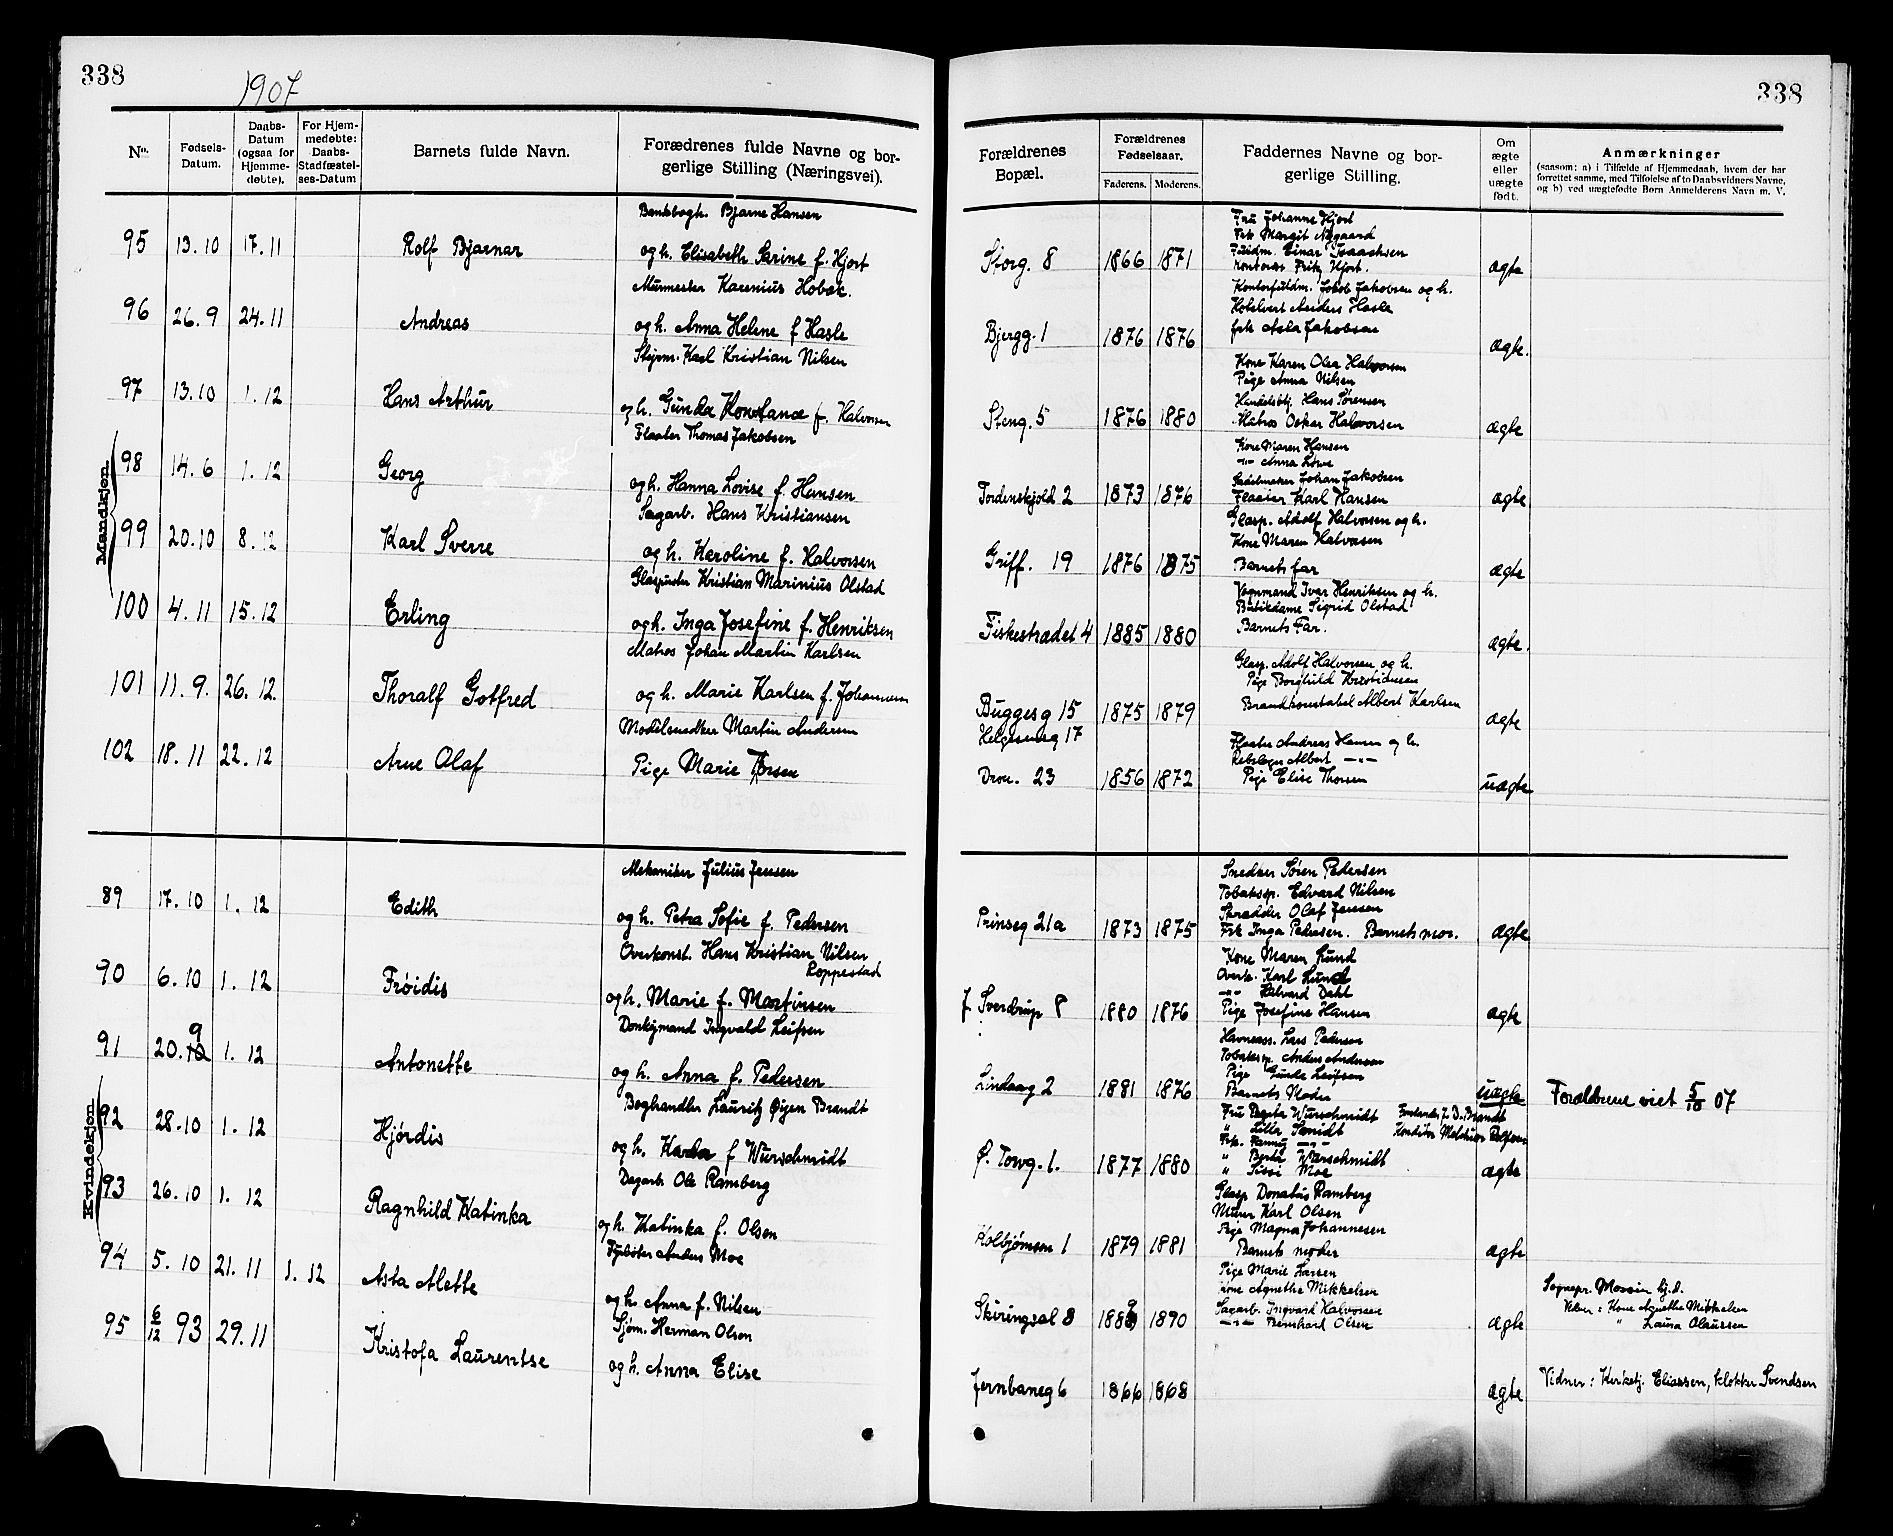 338
1907
No.
Fødsels-
Datum.
Daabs-
Datum
(ogsaa for
Hjemme-
døbte).
For Hjem-
medøbte:
Daabs-
Stadfæstel-
ses-Datum
Barnets fulde Navn.
Forædrenes fulde Navne og bor-
gerlige Stilling (Næringsvei).
Mandkjøn
Bankbogh. Bjarne Hansen
95 13.10 17.11 Rolf Bjarnar
og h. Elisabeth Sarine f. Hjort
Murmester Karenius Hobæk.
96 26.9 24.11 Andreas
og h. Anna Helene f Hasle
Styrm. Karl Kristian Nilsen
97 13.10 1.12 Hans Arthur
og h. Gunda Konstance f. Halvorsen
Flaater Thomas Jakobsen
98 14.6 1.12 Georg
og h. Hanna Lovise f. Hansen
Sagarb. Hans Kristiansen
99 20.10 8.12 Karl Sverre
og h. Karoline f. Halvorsen
Glaspuster Kristian Marinius Olstad
100 4.11 15.12 Erling
og h. Inga Josefine f. Henriksen
Matros Johan Martin Karlsen
101 11.9. 26.12 Thoralf Gotfred
og h. Marie Karlsen f. Johannesen
Modelsnedker Martin Andersen
102 18.11 22.12 Arne Olaf
Pige Marie Thorsen
Kvindekjøn
Mekaniker Julius Jensen
89 17.10 1.12 Edith
og h. Petra Sofie f. Pedersen
Overkonst. Hans Kristian Nilsen
Roppestad
90 6.10 1.12 Frøidis
og h. Marie f. Martinsen
Donkymand Ingvald Leifsen
9
91 20.10 1.12 Antonette
og h. Anna f. Pedersen
Boghandler Lauritz Øigen Brandt
92 28.10 1.12 Hjørdis
og h. Karda f Wurschmidt
Dagarb. Ole Ramberg
93 26.10 1.12 Ragnhild Katinka
og h. Katinka f. Olsen
Fyrbøter Anders Moe
94 5.10 21.11 1.12 Asta Alette
og h. Anna f. Nilsen
Sjøm. Herman Olsen
95 6/12 93 29.11 Kristofa Laurentse
og h. Anna Elise
338
Forældrenes
Bopæl.
Forældrenes
Fødselsaar.
Faderens. Moderens.
Faddernes Navne og bor-
gerlige Stilling.
Om
ægte
eller
uægte
født.
Anmærkninger
(saasom: a) i Tilfælde af Hjemmedaab, hvem der har
forrettet samme, med Tilføielse af to Daabsvidners Navne,
og b) ved uægtefødte Børn Anmelderens Navn m. V.
Fru Johanne Hjort
Frk Margit Nygaard
Fuldm. Einar Isaachsen
Kontorist Fritz Hjort.
Storg. 8 1866 1871 ægte
Kontorfuldm. Jakob Jakobsen og h.
Hotelvert Anders Hasle
frk Asla Jakobsen
Bjergg. 1 1876 1876 ægte.
Kone Karen Olea Halvorsen
Pige Anna Nilsen
Handelsbtj. Hans Sørensen
Matros Oskar Halvorsen
Steng. 5 1876 1880 ægte
Kone Maren Hansen
-"- Anna Lowe
Sadelmaker Johan Jakobsen
Flaaier Karl Hansen
Tordenskjold 2 1873 1876 ægte
Glasp. Adolf Halvorsen og h.
Kone Maren Halvorsen
Barnets far
Griff. 19 1876 1875 ægte
Vognmand Ivar Henriksen og h.
Butikdame Sigrid Olstad
Barnets Far.
Fiskestrædet 4 1885 1880 ægte.
Glasp. Adolf Halvorsen og h.
Pige Borghild Kristiansen
Brandkonstabel Albert Karlsen
Buggesg 15 1875 1879 ægte
Helgesensg 17
Flaater Andreas Hansen og h.
Rebslager Albert -"-
Pige Elise Thorsen
Dron. 23 1856 1872 uægte
Snedker Søren Pedersen
Tobaksp. Edvard Nilsen
Skrædder Olaf Jensen
Frk Inga Pedersen. Barnets mor.
Prinseg 21a 1873 1875 ægte
Kone Maren Lund
Overk. Karl Lund
-"- Halvard Dahl
Pige Josefine Hansen
J. Sverdrup 8 1880 1876 ægte
Havneass. Lars Pedersen
Tobaksp. Anders Andersen
Pige Gunda Leifsen
Barnets Moder
Lindaag 2 1881 1876 uægte Forældrene viet 5/10 07
Fru Wurschmidt J. D. Brandt
" Lilla Smidt Konditor Melchior
Frk. Fanny -"-
" Berta Wurschmidt
" Sissi Moe
Ø. Torvg. 1. 1877 1880 ægte
Glasp Donatus Ramberg
Murer Karl Olsen
Pige Magna Johannesen
Barnets moder
Kolbjørnsen 1 1879 1881 ægte
Pige Marie Larsen
Kone Agnethe Mikkelsen
Sagarb. Ingvard Halvorsen
-"- Bernhard Olsen
Skiringsal 8 1889 1890 ægte
Sognepr. hj. d.
Vidner: Kone Agnethe Mikkelsen
" Laura Olaussen
Jernbaneg 6 1866 1868 ægte Vidner: Kirketj. Eliassen, klokker Svendsen